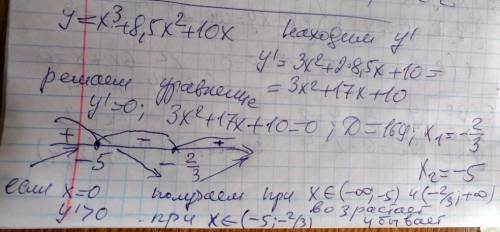 y=x³+8,5x²+10x находим y'
y'=3x²+2·8,5x+10=
решаем уравнение =3x²+17x+10
y'=0; 3x²+17x+10=0; D=169; x₁=-2/3
+ - +
-5 -2/3 x₂=-5
если x=0 получаем при x∈(-∞,-5) и (-2/3;+∞)
y'>0 возрастает
при x∈(-5;-2/3) убывает